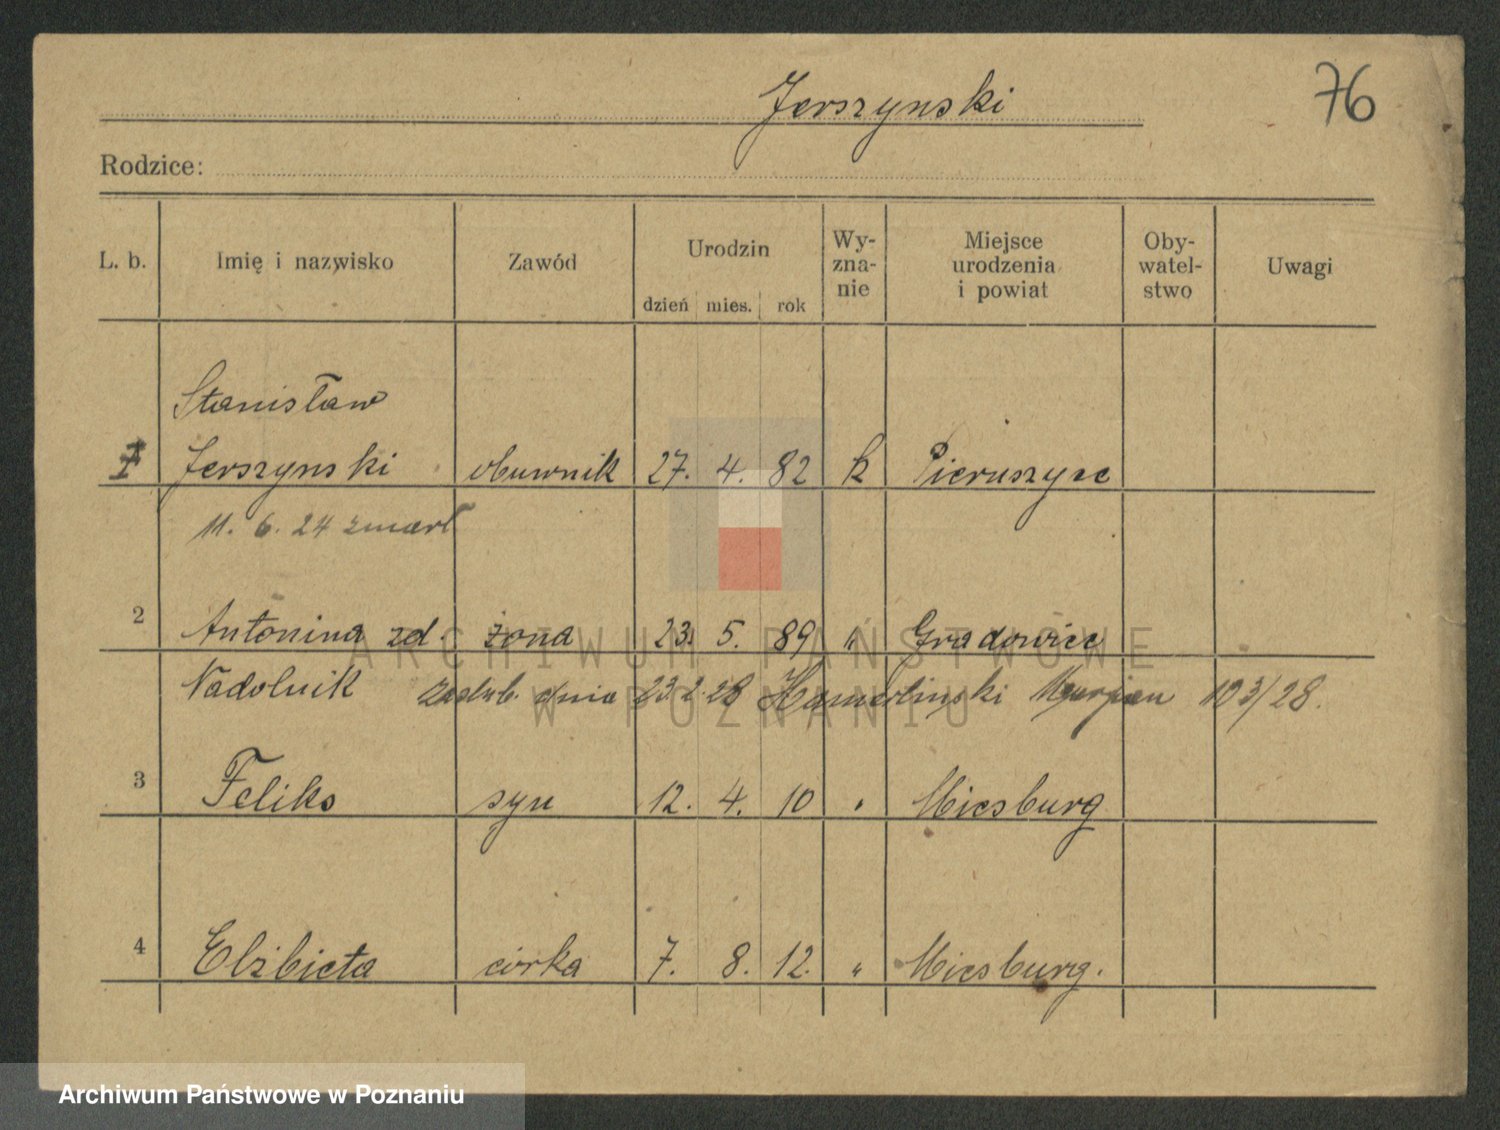 76
Jerszynski
Rodzice:
L. b. Imię i nazwisko Zawód Urodzin dzień mies. rok Wy-zna-nie Miejsce urodzenia i powiat Oby-watel-stwo Uwagi
Stanisław
1 Jerszynski obuwnik 27. 4. 82 k Pieruszyce
11. 6. 24 zmarł
2 Antonina zd. żona 23. 5. 89 " Gradowice
Nadolnik zaślub. dnia 23.2.28 Hamerlinski Marjan 103/28.
3 Feliks syn 12. 4. 10 " Miesburg
4 Elżbieta córka 7. 8. 12. " Miesburg.
ARCHIWUM PAŃSTWOWE
W POZNANIU
Archiwum Państwowe w Poznaniu